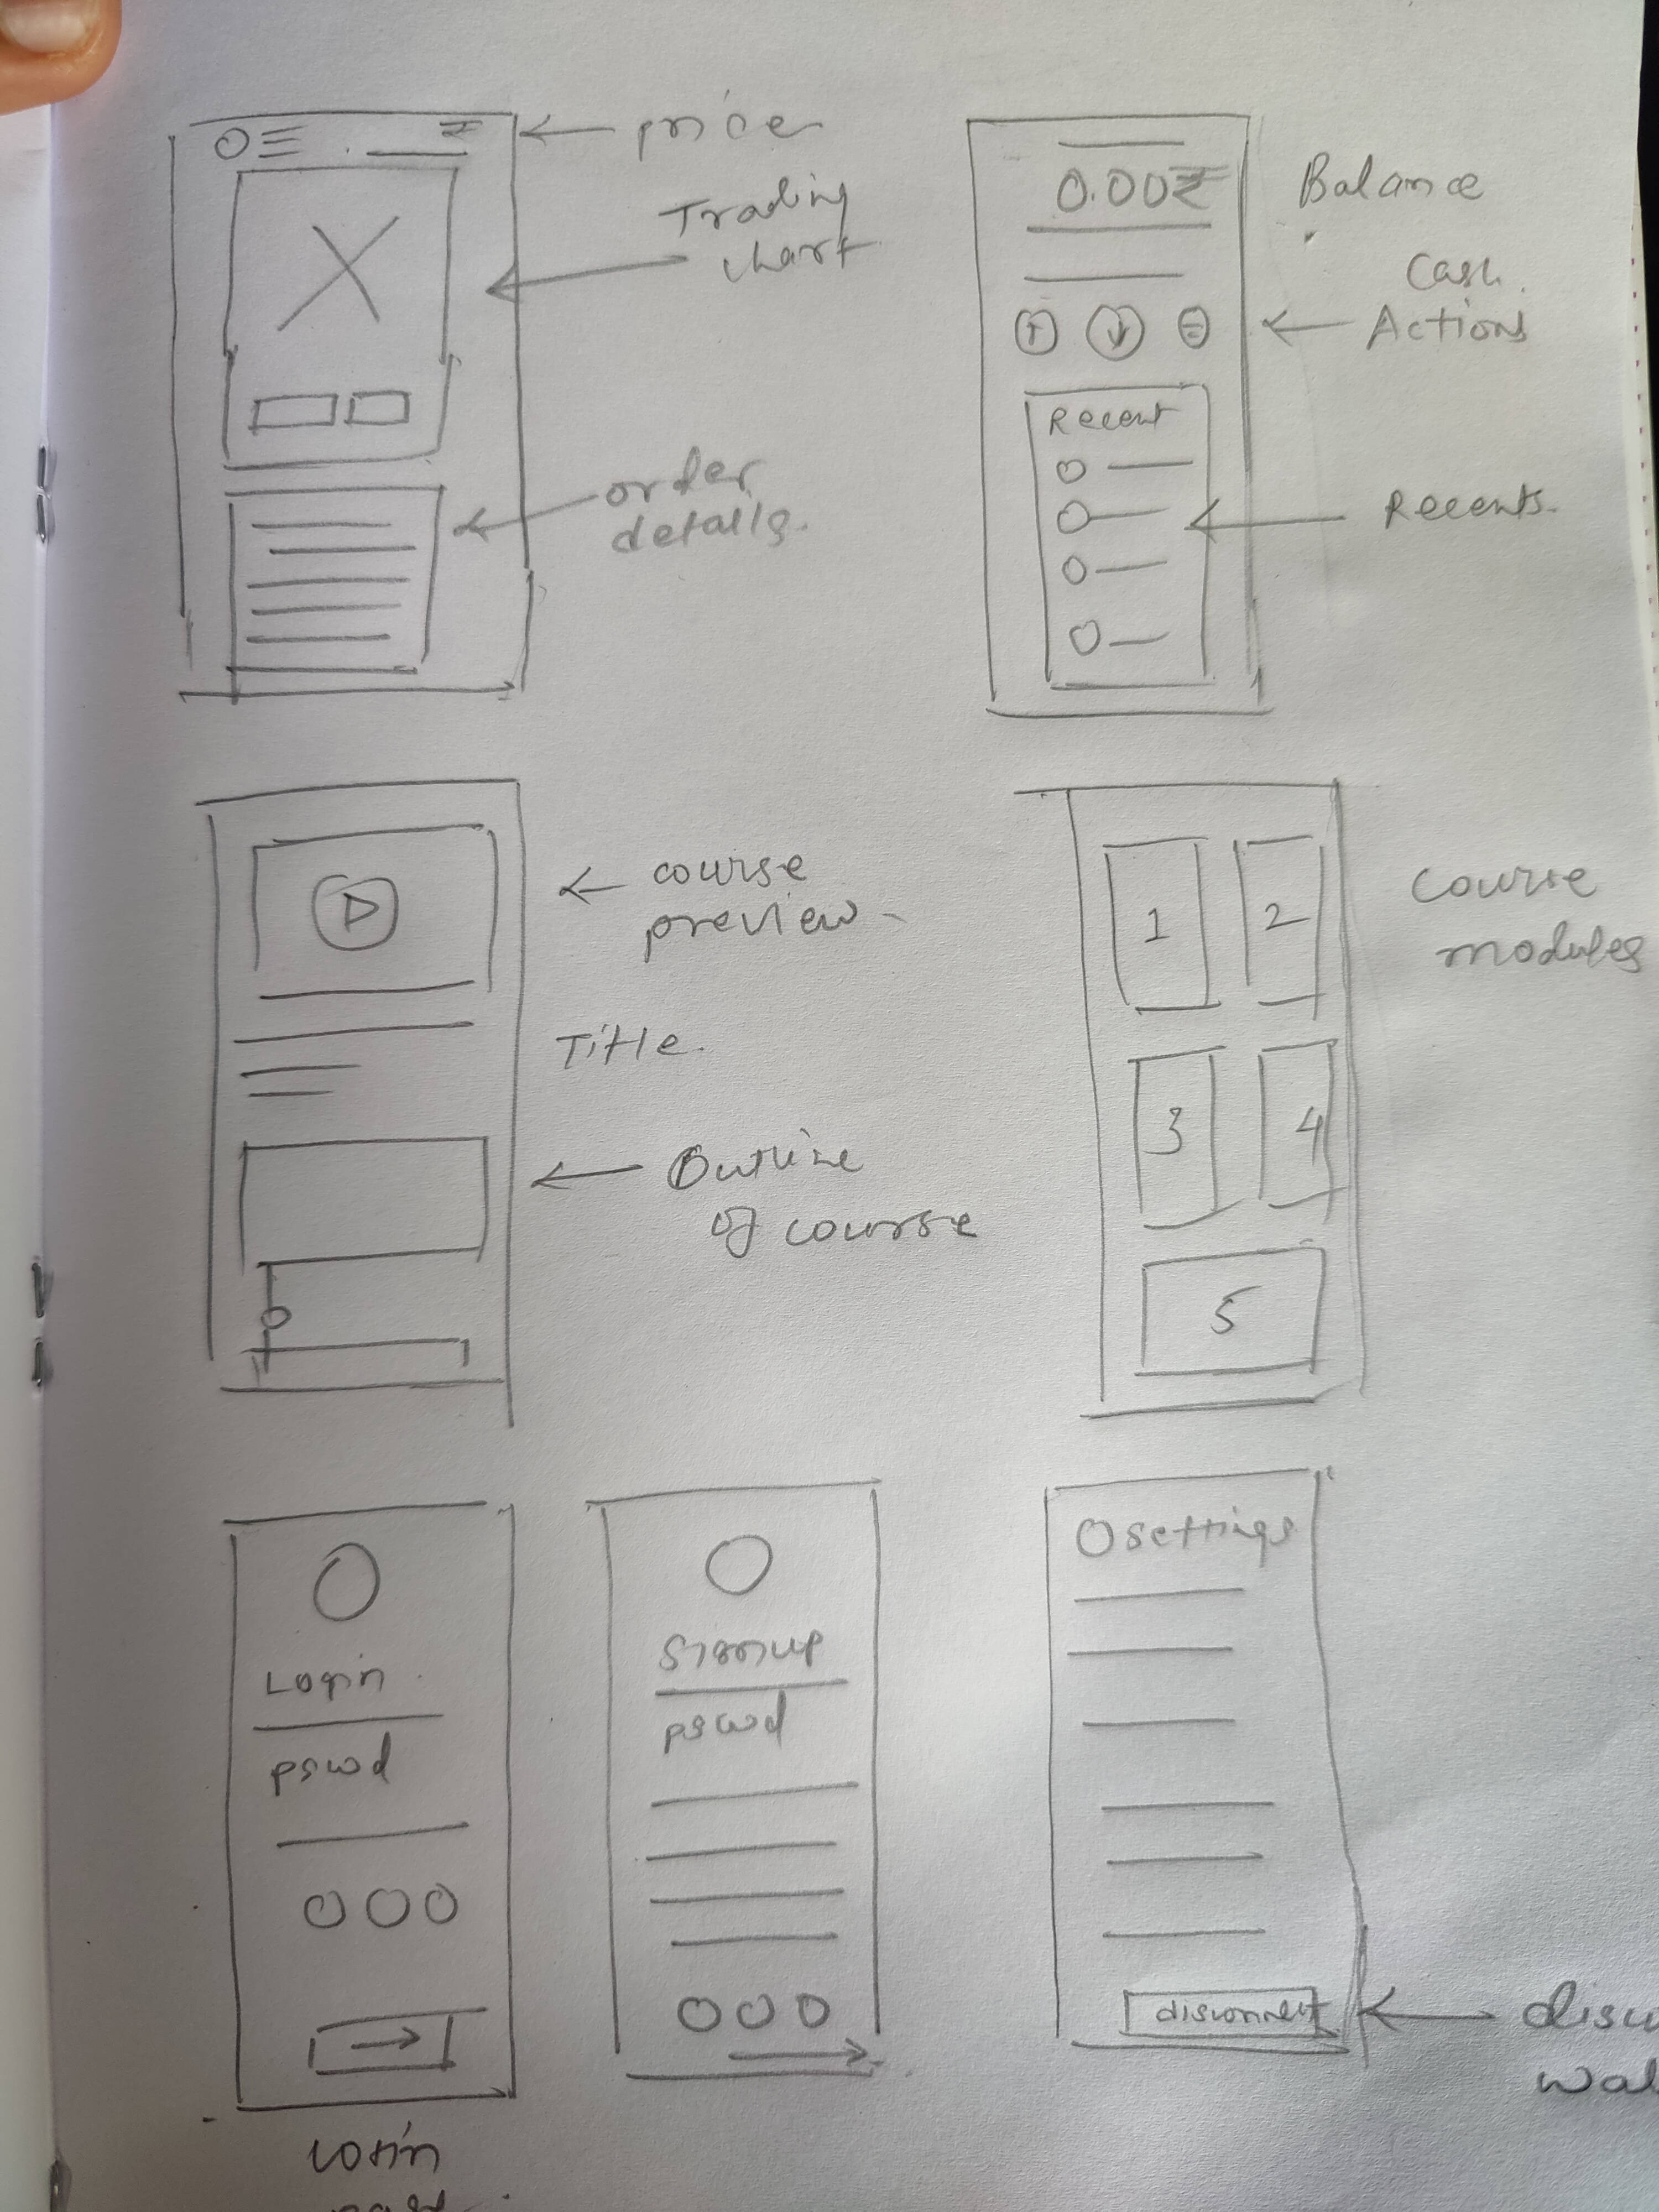 ₹
price
Trading
chart
order
details.
0.00₹
Balance
Cash
Actions
Recent
Recents.
course
preview
Title.
Outline
of course
1
2
3
4
5
Course
modules
Login
pswd
Signup
pswd
Settings
disconnect
Login